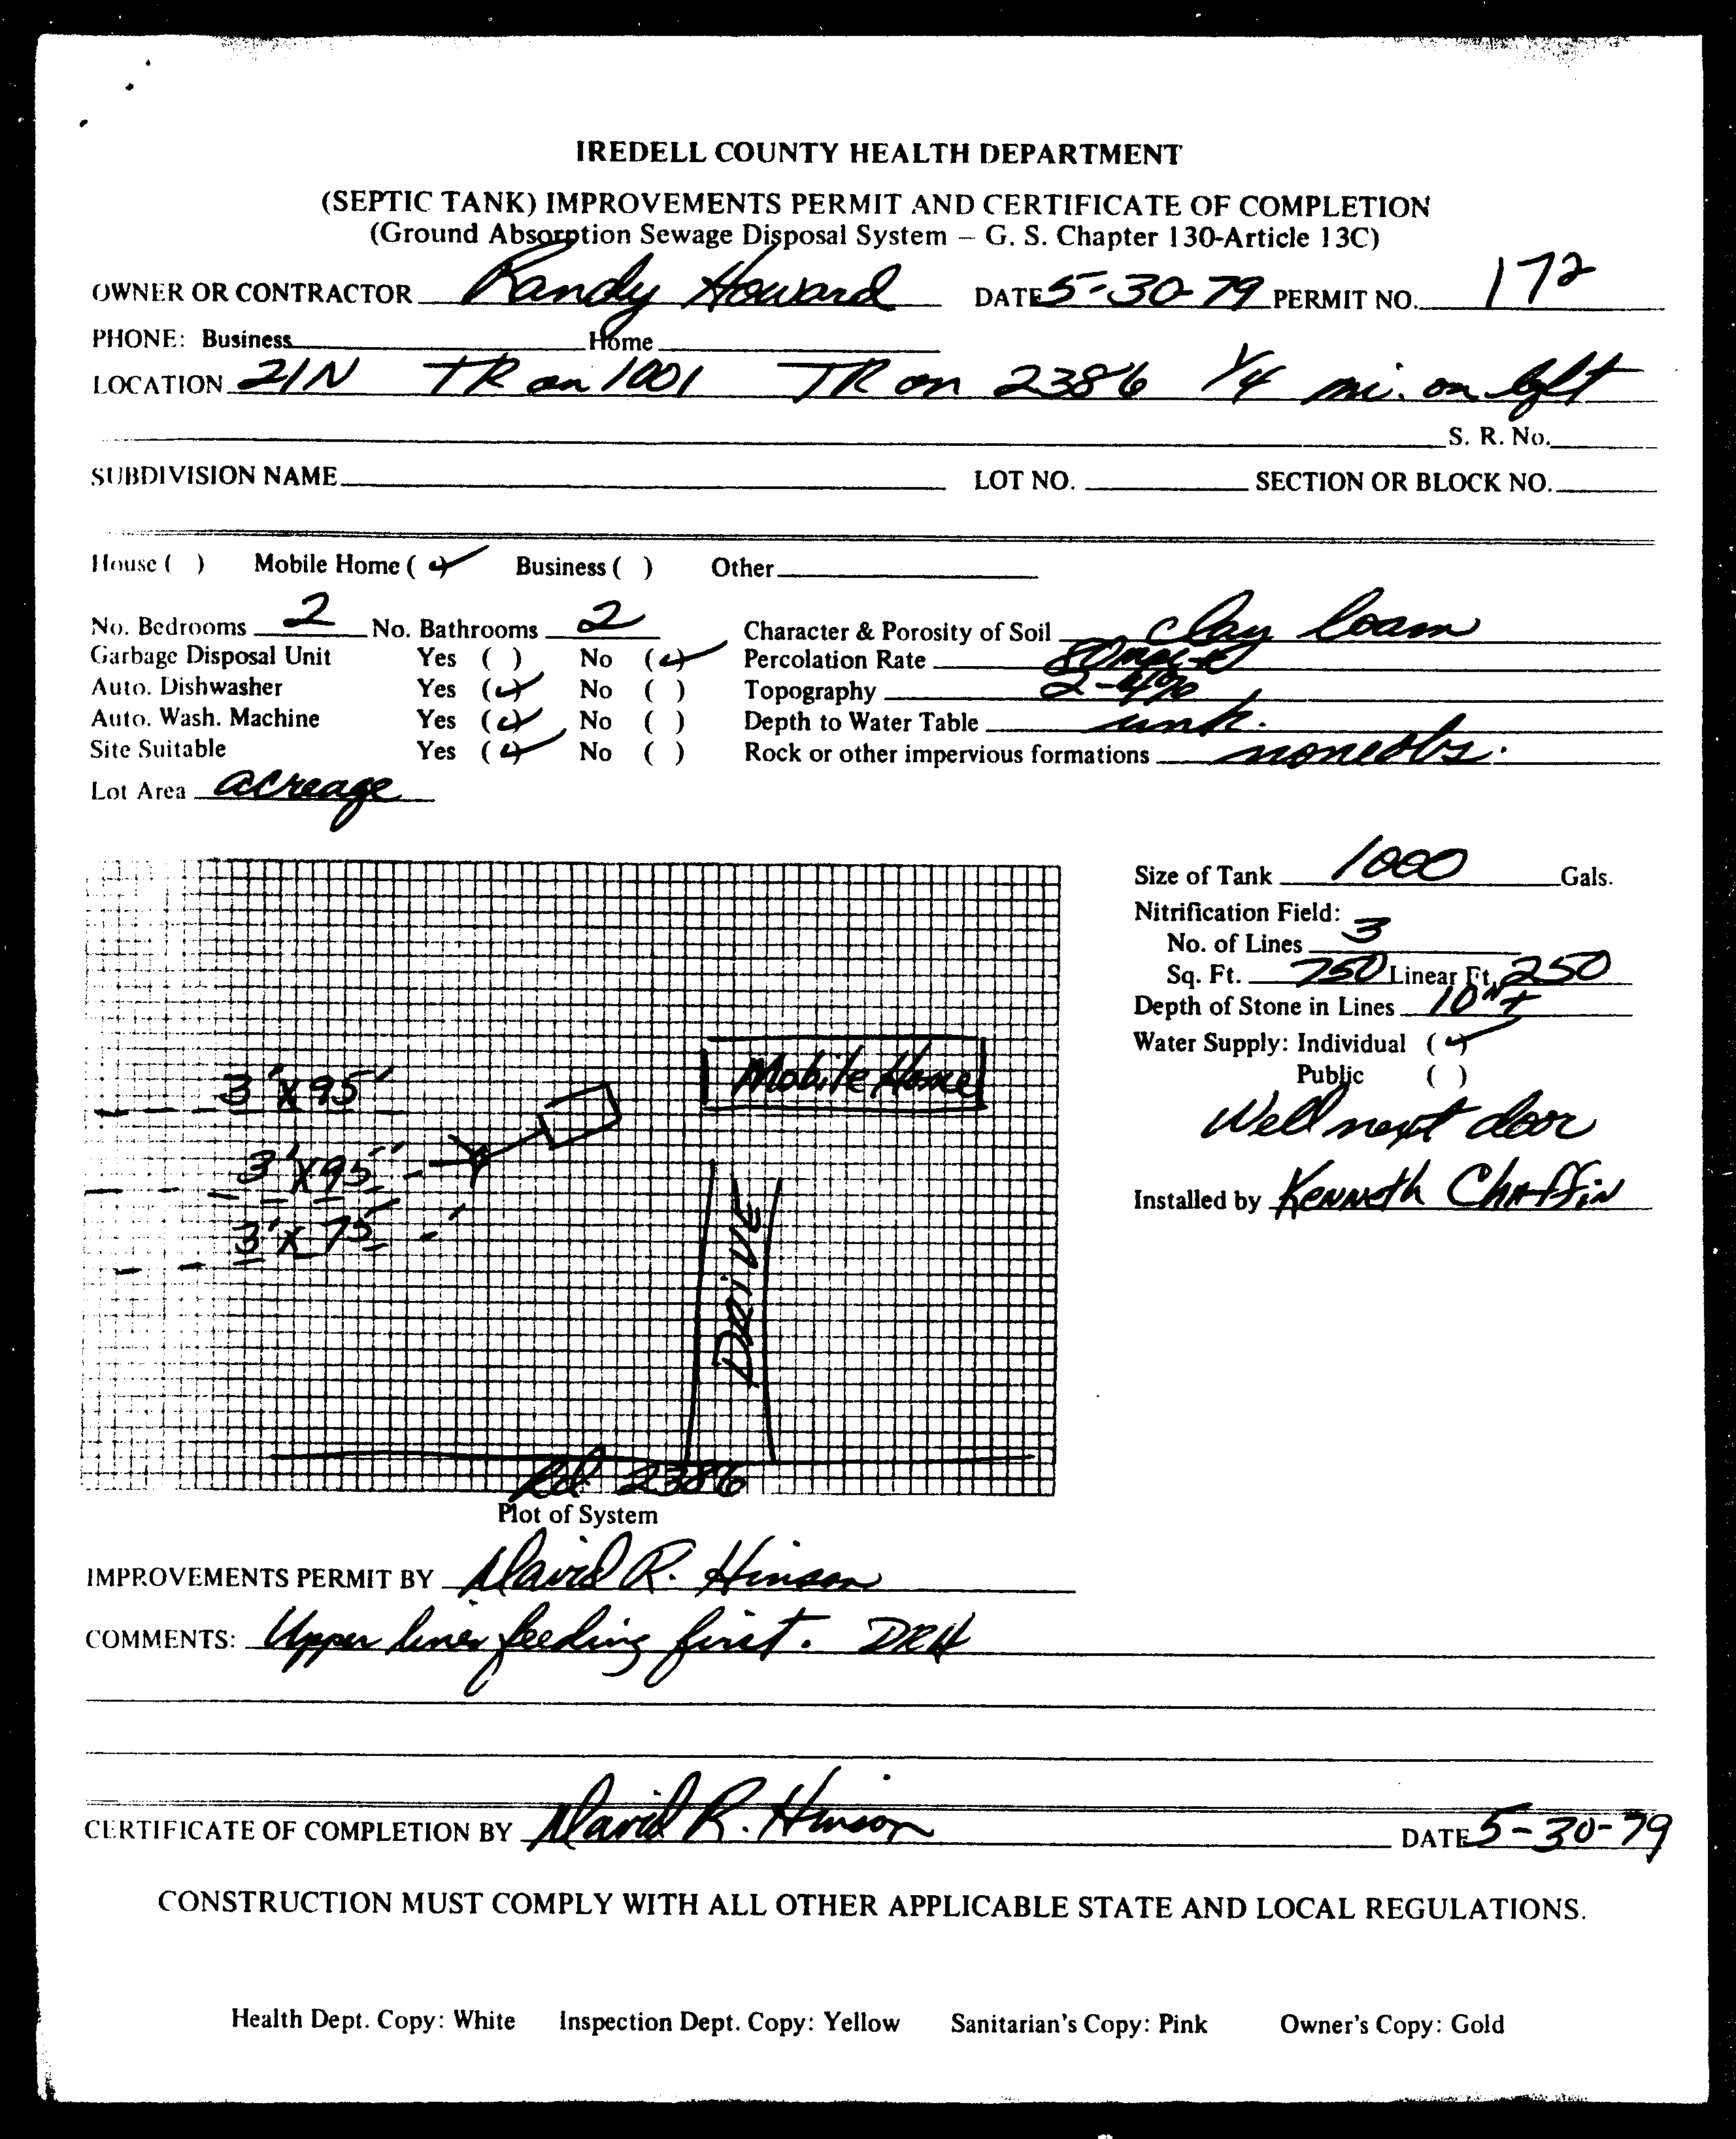 IREDELL COUNTY HEALTH DEPARTMENT
(SEPTIC TANK) IMPROVEMENTS PERMIT AND CERTIFICATE OF COMPLETION
(Ground Absorption Sewage Disposal System – G. S. Chapter 130-Article 13C)
OWNER OR CONTRACTOR Randy Howard DATE 5-30-79 PERMIT NO. 172
PHONE: Business Home
LOCATION 21N TR on 1001 TR on 2386 1/4 mi. on left
S. R. No.
SUBDIVISION NAME LOT NO. SECTION OR BLOCK NO.
House ( ) Mobile Home (✓) Business ( ) Other
No. Bedrooms 2 No. Bathrooms 2 Character & Porosity of Soil clay loam
Garbage Disposal Unit Yes ( ) No (✓) Percolation Rate 80 mpi
Auto. Dishwasher Yes (✓) No ( ) Topography 2-4%
Auto. Wash. Machine Yes (✓) No ( ) Depth to Water Table unk.
Site Suitable Yes (✓) No ( ) Rock or other impervious formations none obs.
Lot Area acreage
Size of Tank 1000 Gals.
Nitrification Field:
No. of Lines 3
Sq. Ft. 750 Linear Ft. 250
Depth of Stone in Lines 10"+
Water Supply: Individual (✓)
Public ( )
Well next door
Installed by Kenneth Chaffin
Mobile Home
3'x95'
3'x95'
3'x75'
Drive
Rd 2386
Plot of System
IMPROVEMENTS PERMIT BY David R. Hinson
COMMENTS: Upper lines feeding first. DRH
CERTIFICATE OF COMPLETION BY David R. Hinson DATE 5-30-79
CONSTRUCTION MUST COMPLY WITH ALL OTHER APPLICABLE STATE AND LOCAL REGULATIONS.
Health Dept. Copy: White Inspection Dept. Copy: Yellow Sanitarian's Copy: Pink Owner's Copy: Gold